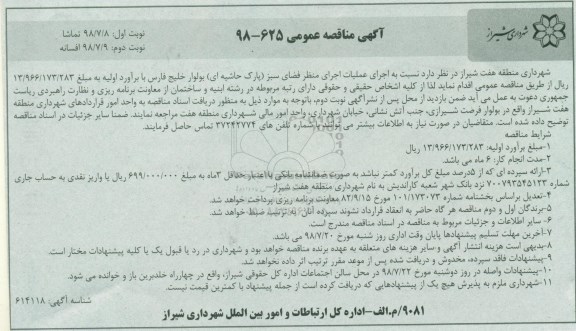 آگهی مناقصه عمومی ۶۲۵-۹۸
نوبت اول: ۹۸/۷/۸ تماشا
نوبت دوم: ۹۸/۷/۹ افسانه
شهرداری شیراز
شهرداری منطقه هفت شیراز در نظر دارد نسبت به اجرای عملیات اجرای منظر فضای سبز (پارک حاشیه ای) بولوار خلیج فارس با برآورد اولیه به مبلغ ۱۳/۹۶۶/۱۷۳/۲۸۳
ریال از طریق مناقصه عمومی اقدام نماید لذا از کلیه اشخاص حقیقی و حقوقی دارای رتبه مربوطه در رشته ابنیه و ساختمان از معاونت برنامه ریزی و نظارت راهبردی ریاست
جمهوری دعوت به عمل می آید ضمن بازدید از محل پس از نشرآگهی نوبت دوم، باتوجه به موارد ذیل به منظور دریافت اسناد مناقصه به واحد امور قراردادهای شهرداری منطقه
هفت شیراز واقع در بولوار فرصت شیرازی، جنب آتش نشانی، خیابان شهرداری، واحد امور مالی شهرداری منطقه هفت مراجعه نمایند. ضمنا سایر جزئیات در اسناد مناقصه
توضیح داده شده است. متقاضیان در صورت نیاز به اطلاعات بیشتر می توانند با شماره تلفن های ۳۷۲۴۲۷۷۴ تماس حاصل فرمایند.
شرایط مناقصه
۱-مبلغ برآورد اولیه: ۱۳/۹۶۶/۱۷۳/۲۸۳ ریال
۲-مدت انجام کار: ۶ ماه می باشد.
۳-ارائه سپرده ای که از ۵درصد مبلغ کل برآورد کمتر نباشد به صورت ضمانتنامه بانکی با اعتبار حداقل ۳ماه به مبلغ ۶۹۹/۰۰۰/۰۰۰ ریال یا واریز نقدی به حساب جاری
شماره ۷۰۰۷۹۳۵۴۵۱۲۳ نزد بانک شهر شعبه کاراندیش به نام شهرداری منطقه هفت شیراز
۴-تعدیل براساس بخشنامه شماره ۱۰۱/۱۷۳۰۷۳ مورخ ۸۲/۹/۱۵ معاونت برنامه ریزی پرداخت خواهد شد.
۵-برندگان اول و دوم مناقصه هر گاه حاضر به انعقاد قرارداد نشوند سپرده آنان به ترتیب ضبط خواهد شد.
۶- سایر اطلاعات و جزئیات مربوط به مناقصه در اسناد مناقصه مندرج است.
۷-آخرین مهلت تسلیم پیشنهادها پایان وقت اداری روز شنبه مورخ ۹۸/۷/۲۰ می باشد.
۸-بدیهی است هزینه انتشار آگهی و سایر هزینه های متعلقه به عهده برنده مناقصه خواهد بود و شهرداری در رد یا قبول یک یا کلیه پیشنهادات مختار است.
۹-پیشنهادات فاقد سپرده، مخدوش و دریافت شده پس از موعد مقرر ترتیب اثر داده نخواهد شد.
۱۰-پیشنهادات واصله در روز دوشنبه مورخ ۹۸/۷/۲۲ در محل سالن اجتماعات اداره کل حقوقی شیراز، واقع در چهارراه خلدبرین باز و خوانده می شود.
۱۱-شهرداری ملزم به پذیرش هیچ یک از پیشنهادهایی که دریافت کرده است از جمله پیشنهاد با کمترین قیمت نیست.
شناسه آگهی: ۶۱۴۱۱۸
۹۰۸۱/م.الف-اداره کل ارتباطات و امور بین الملل شهرداری شیراز